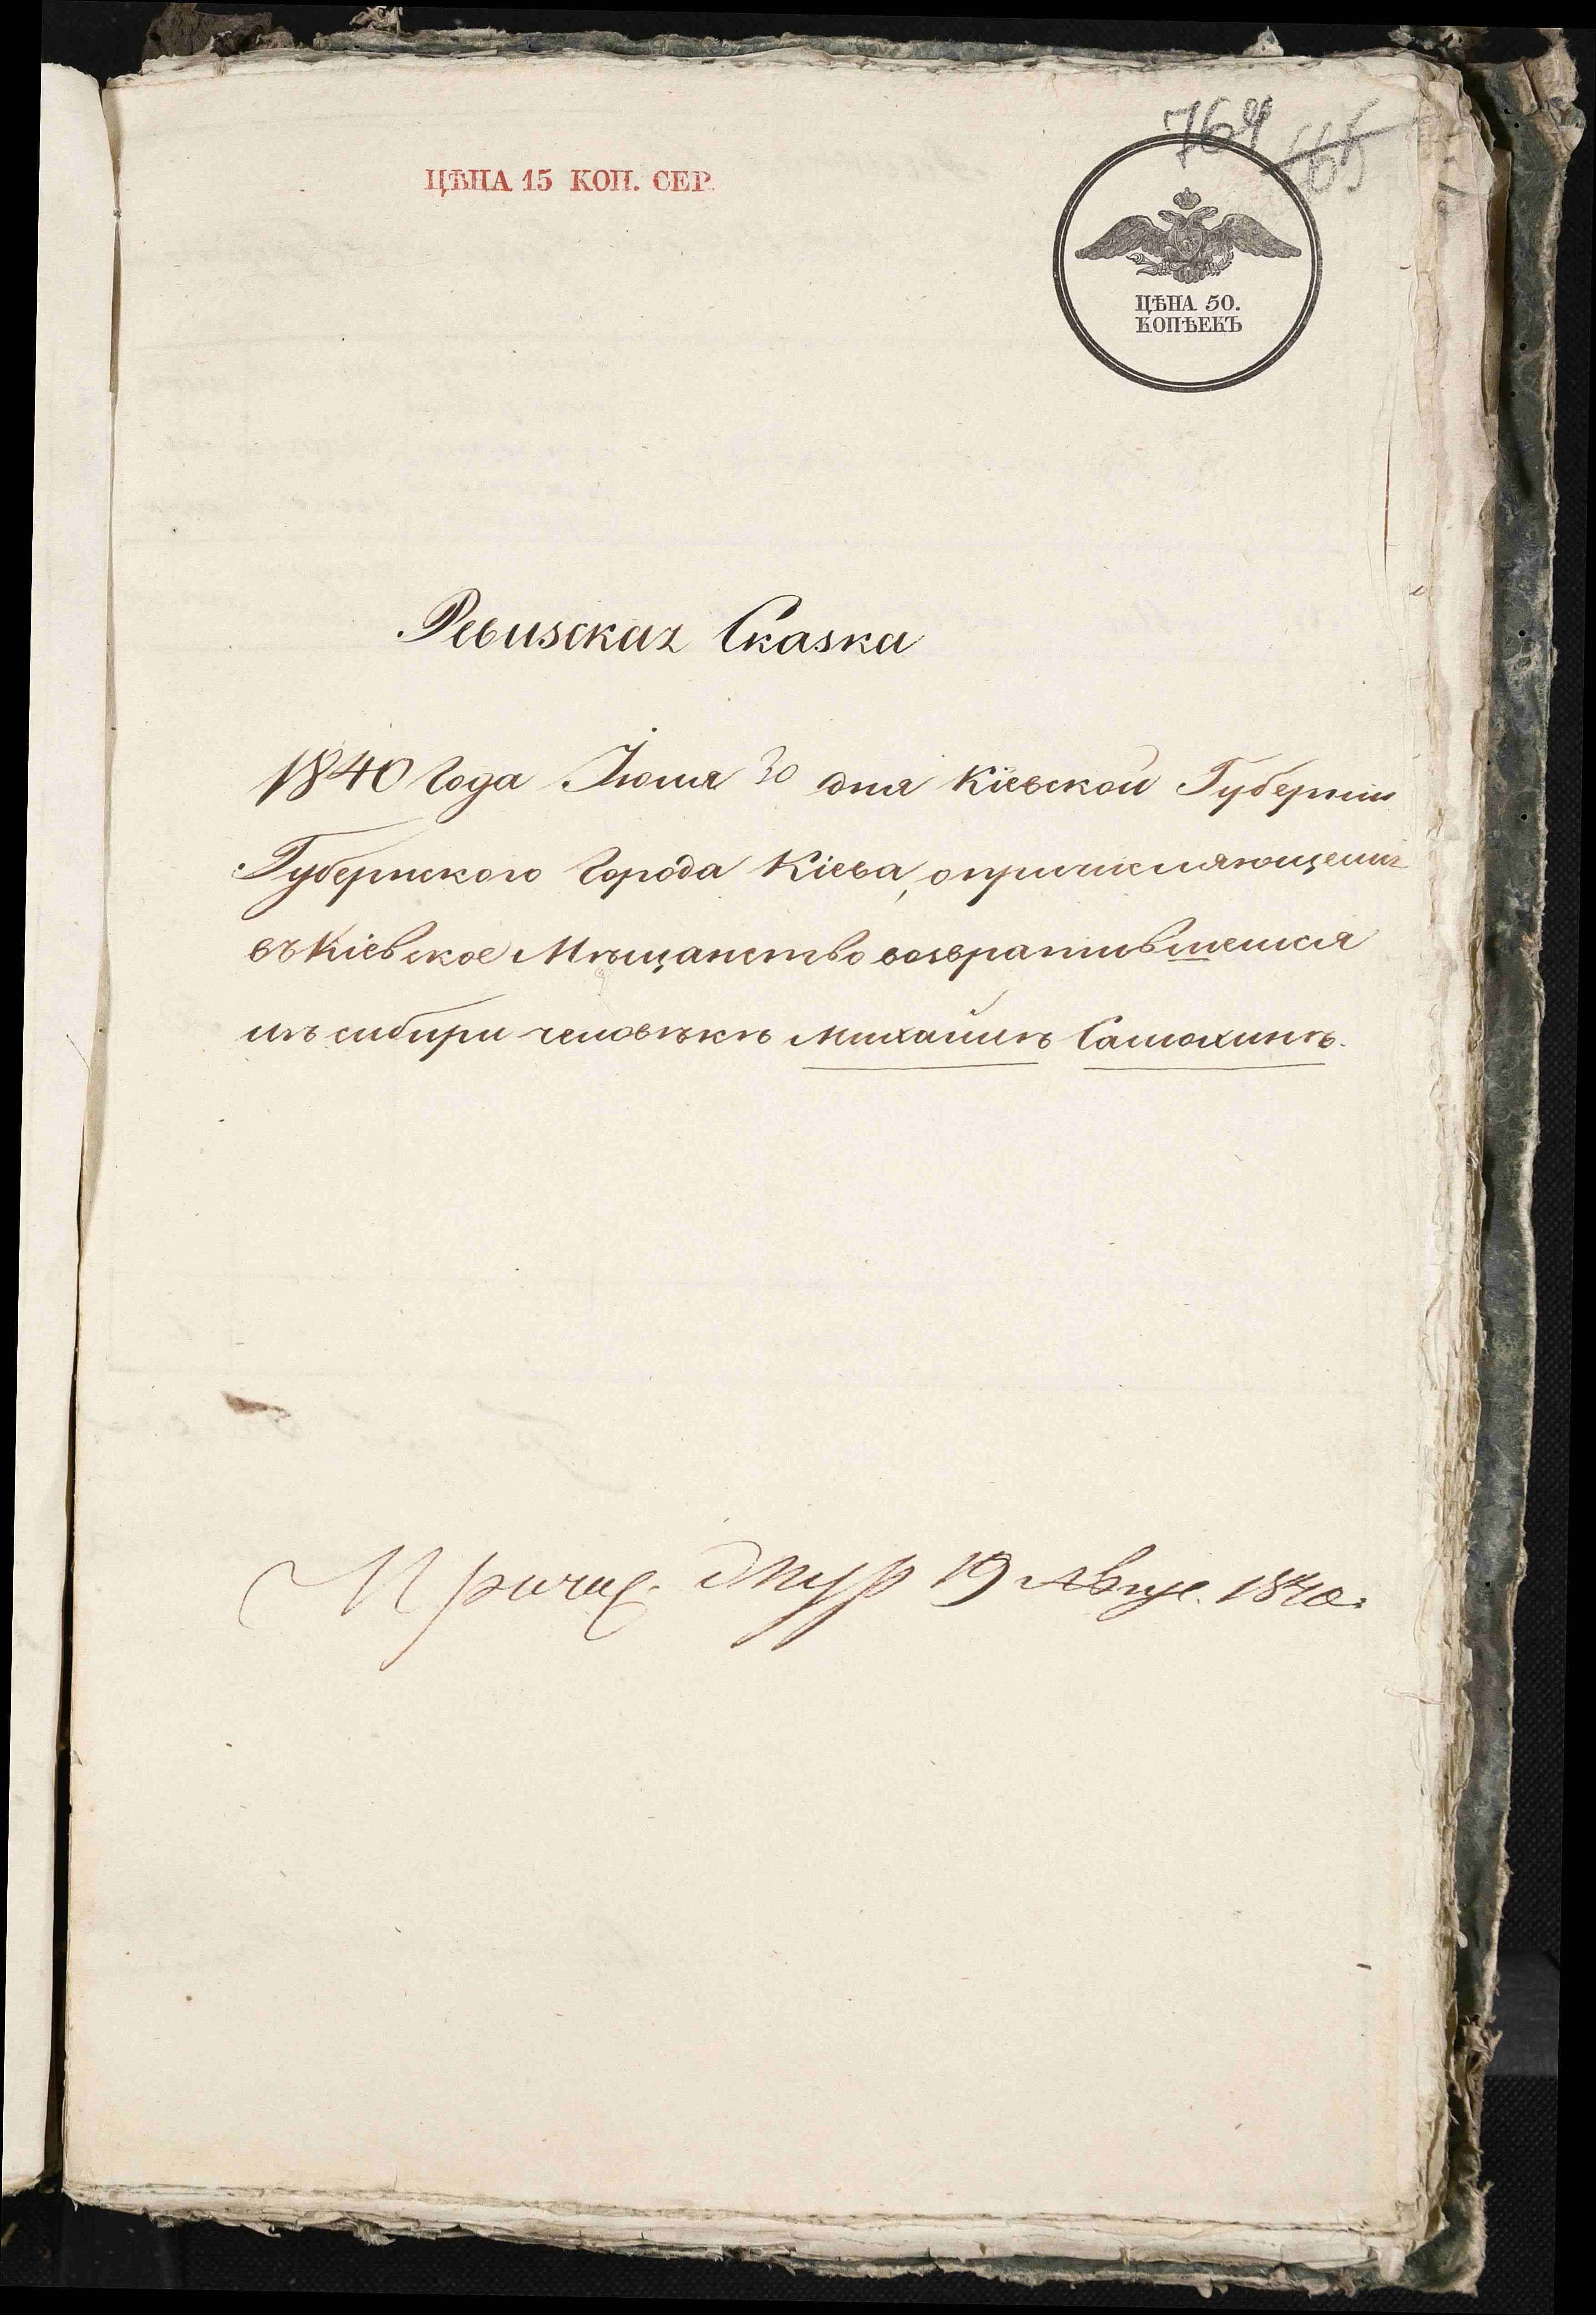 764
ЦѢНА 15 КОП. СЕР.
ЦѢНА 50.
КОПѢЕКЪ
Ревизская Сказка
1840 Года Июля 30 дня Кіевской Губерніи
Губернского Города Кіева, о причисляющемся
въ Кіевское Мѣщанство возвратившемся
изъ сибири человѣкѣ Михайлѣ Самохинѣ.
19 Авгус. 1840.